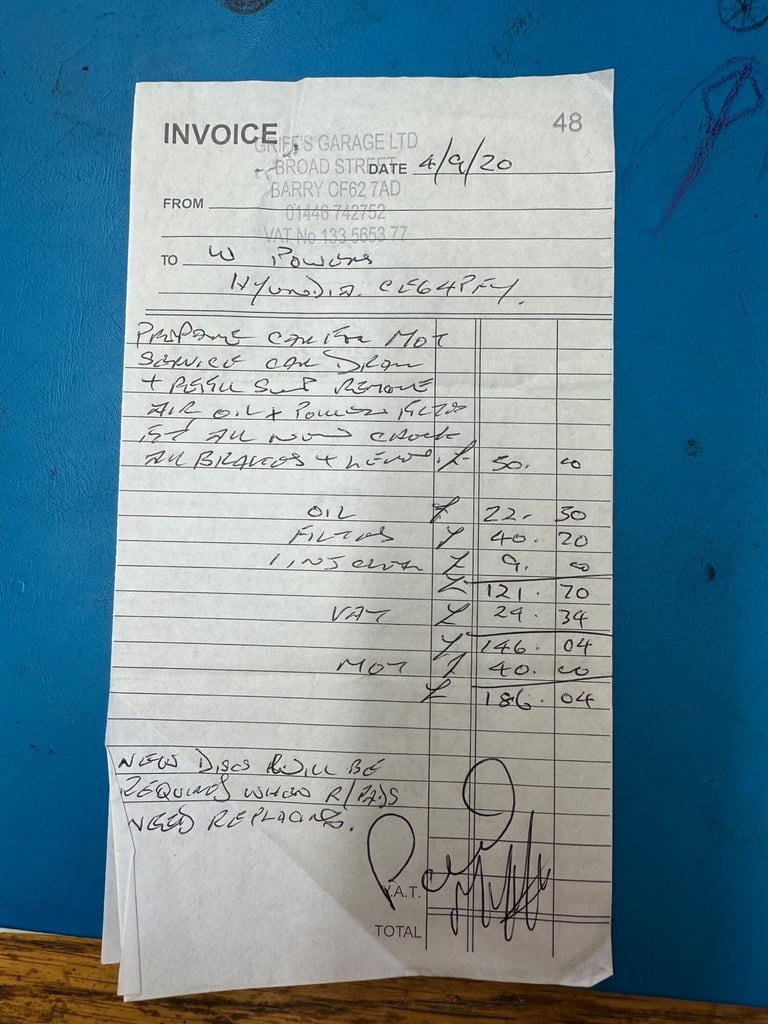 48
INVOICE
GRIFF'S GARAGE LTD
BROAD STREET
BARRY CF62 7AD
01446 742752
VAT No 133 5653 77
DATE 4/9/20
FROM
TO W Powers
CE64PFY.
PREPARE CAR FOR MOT
SERVICE CAR DRAIN
+ REFILL SUMP REMOVE
AIR OIL + POLLEN FILTERS
FIT ALL NEW CHECK
ALL BRAKES + LEVELS £ 50. 00
OIL £ 22. 50
FILTERS £ 40. 20
£ 9. 00
£ 121. 70
VAT £ 24. 34
£ 146. 04
MOT £ 40. 00
£ 186. 04
NEW DISCS WILL BE
REQUIRED WHEN R/PADS
NEED REPLACING.
V.A.T.
TOTAL